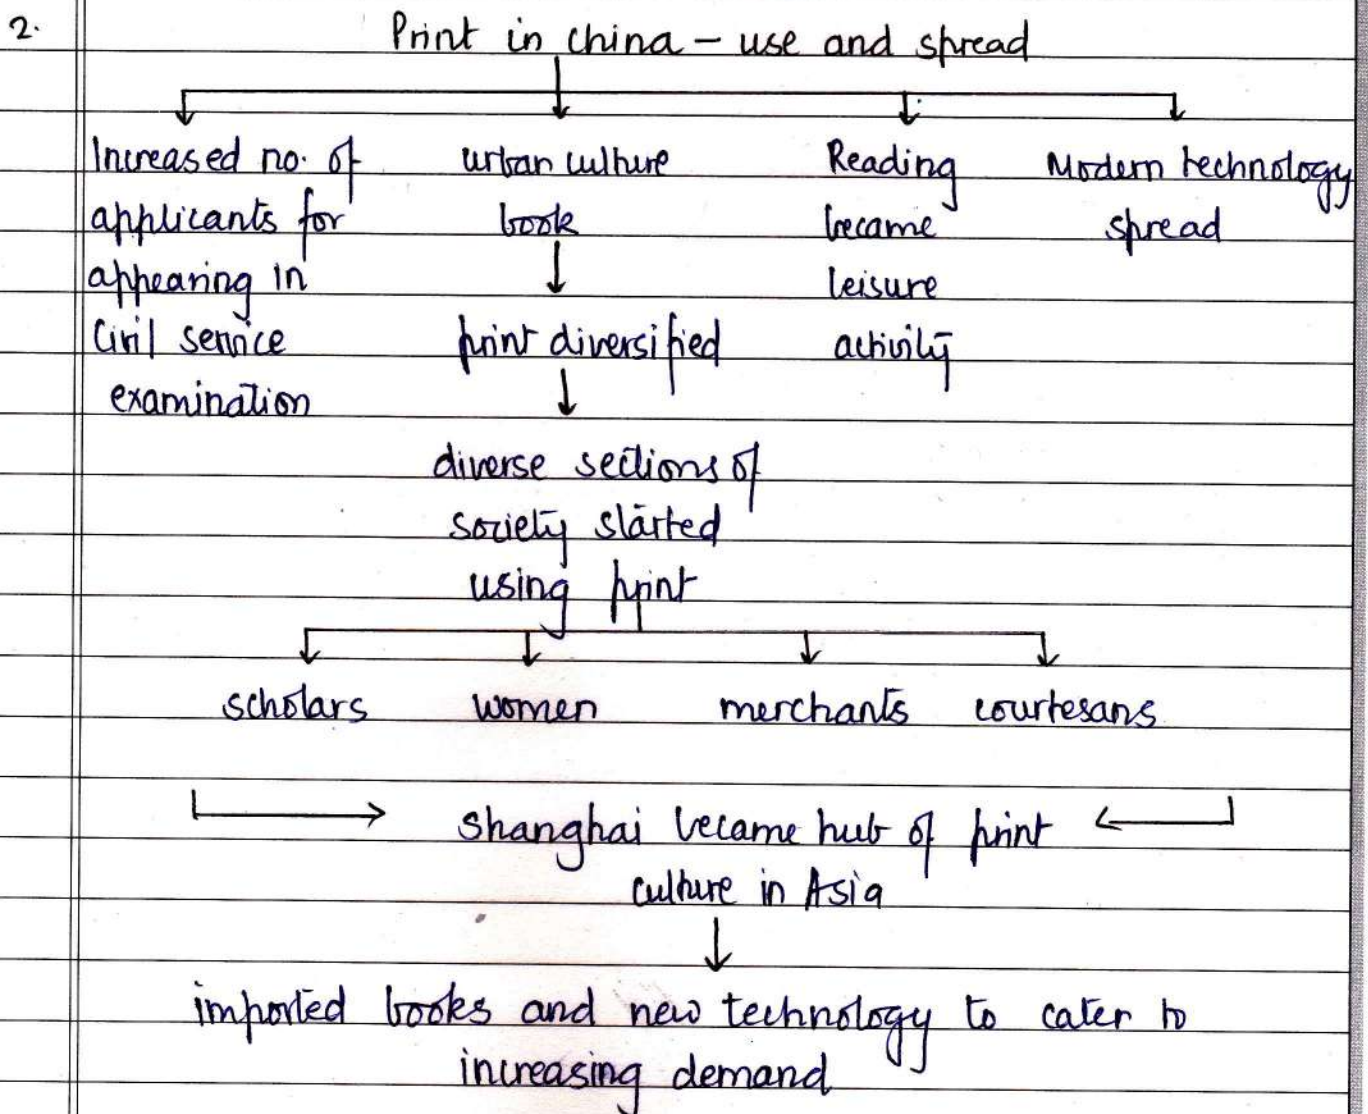 2.
Print in china – use and spread
Increased no. of
applicants for
appearing in
Civil service
examination
urban culture
book
print diversified
diverse sections of
society started
using print
scholars women merchants courtesans
Reading
became
leisure
activity
Modern technology
spread
Shanghai became hub of print
culture in Asia
imported books and new technology to cater to
increasing demand